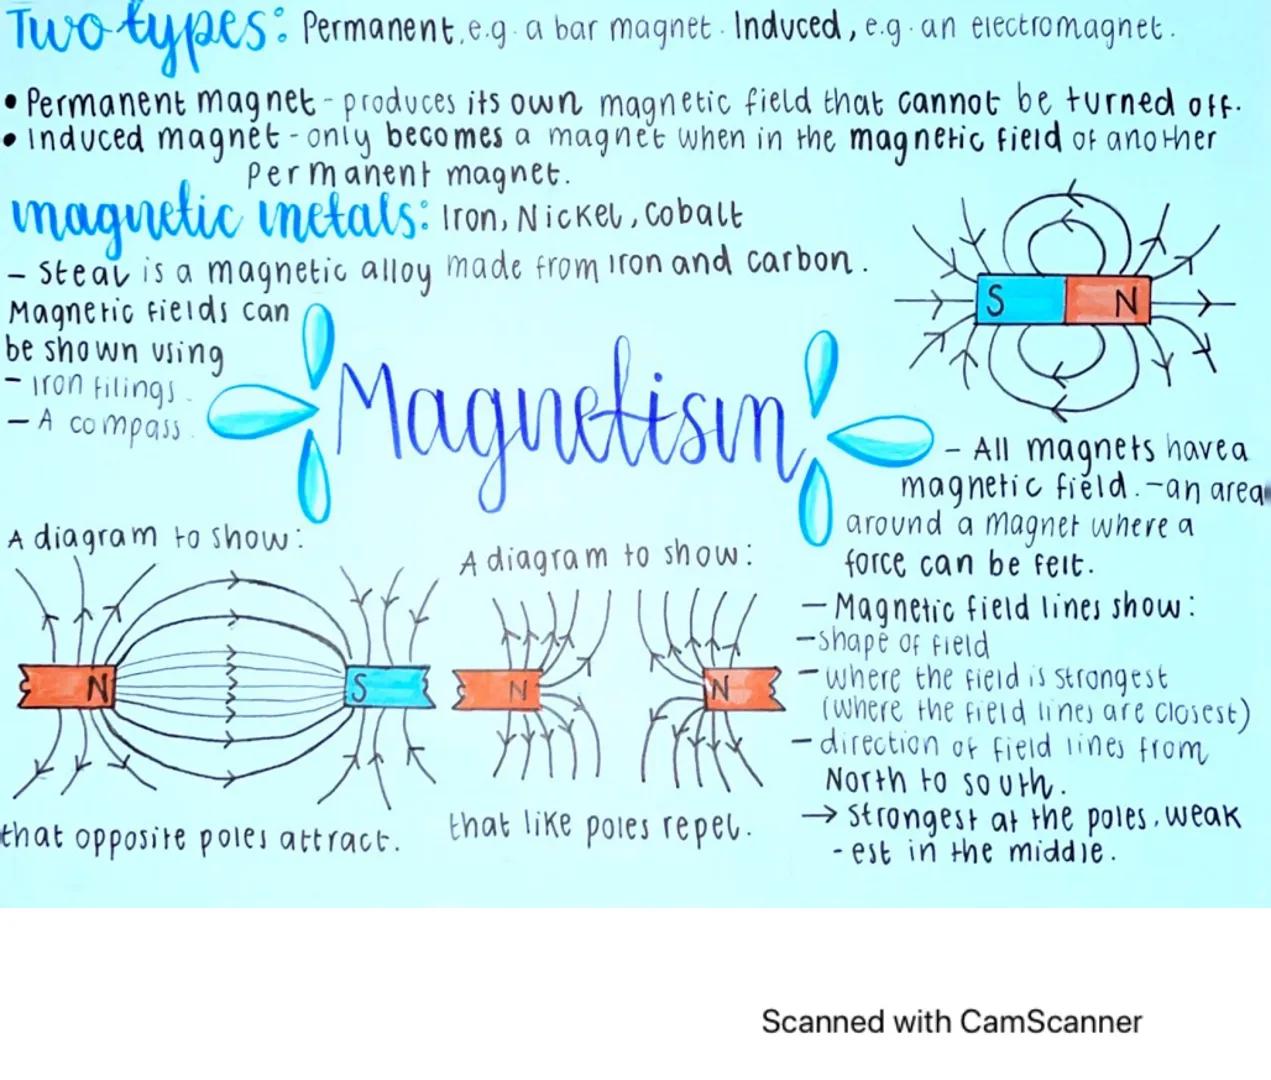 Two types: Permanent, e.g. a bar magnet. Induced, e.g. an electromagnet.
• Permanent magnet - produces its own magnetic field that cannot be turned off.
• Induced magnet - only becomes a magnet when in the magnetic field of another
Permanent magnet.
magnetic metals: Iron, Nickel, Cobalt
- Steal is a magnetic alloy made from iron and carbon.
Magnetic fields can
be shown using
- Iron filings.
- A compass.
S N
Magnetism
- All magnets have a
magnetic field. - an area
around a magnet where a
force can be felt.
- Magnetic field lines show:
- shape of field
- where the field is strongest
(where the field lines are closest)
- direction of field lines from
North to south.
→ strongest at the poles, weak
- est in the middle.
A diagram to show:
N S
that opposite poles attract.
A diagram to show:
N N
that like poles repel.
Scanned with CamScanner